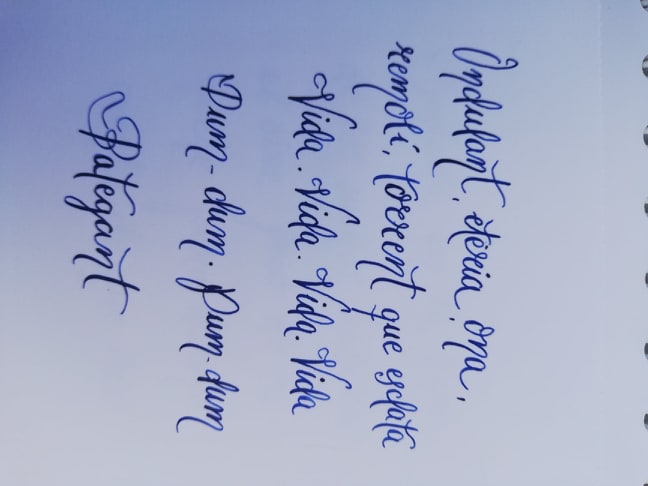 Ondulant, etèria, ona,
remolí, torrent que esclata
Vida. Vida. Vida. Vida
Dum-dum. Dum-dum
Bategant